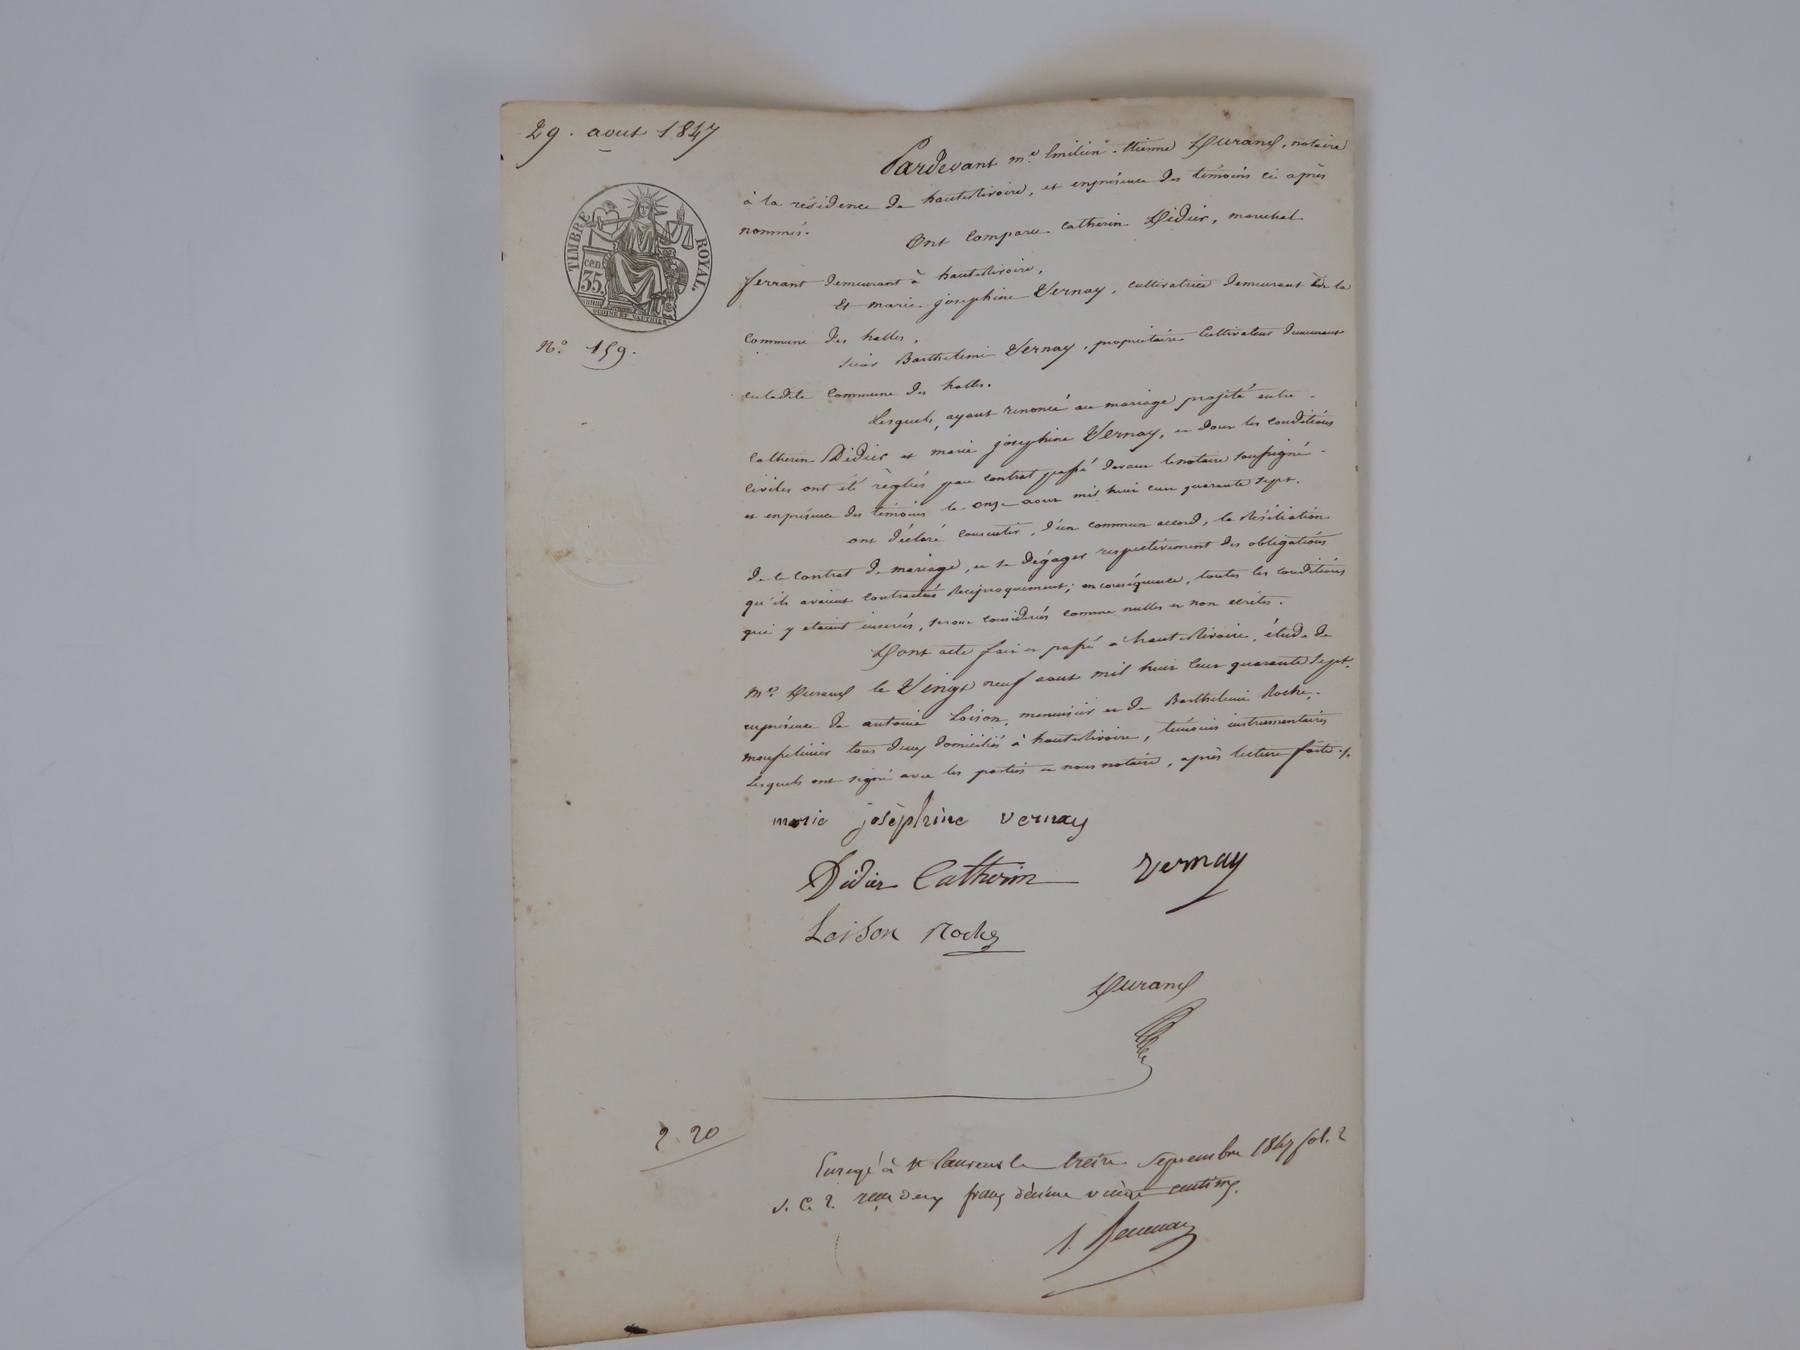 29. aout 1847
TIMBRE ROYAL.
cen
35.
N.o 159.
Pardevant m.e Emilien Etienne Durand, notaire
à la résidence de hauterivoire, et enprésence des témoins ci après
nommés.
Ont Comparu Catherin Didier, marechal
ferrant demeurant à hauterivoire,
Et marie josephine Vernay, cultivatrice demeurant la
Commune des halles,
Sieur Barthelemi Vernay, propriétaire Cultivateur demeurant
en ladite Commune des halles.
Lesquels, ayant renoncé au mariage projété entre
Catherin Didier et marie josephine Vernay, et dont les conditions
Civiles ont été règlées par contrat passé devant le notaire soussigné
et enprésence des témoins le onze aout mil huit cent quarante sept.
ont déclaré consentir, d'un commun accord, la Résiliation
de ce Contrat de mariage, et se dégager respectivement des obligations
qu'ils avaient contractées Réciproquement; en conséquence, toutes les conditions
qui y etaient inserées, seront considerées comme nulles et non ecrites.
Dont acte fait et passé à hauterivoire, étude de
M.e Durand le Vingt neuf aout mil huit Cent quarante Sept,
enprésence de antoine Loison, menuisier et de Barthelemi Roche,
tous deux domiciliés à hauterivoire, témoins instrumentaires
Lesquels ont signé avec les parties et nous notaire, après lecture faite ./.
marie josèphine vernay
Didier Catherin Vernay
Loison Roche
Durand
2. 20
Enregé à St Laurent le treize Septembre 1847 fol. 2
V. C. 2. reçu deux francs décime vingt centimes.